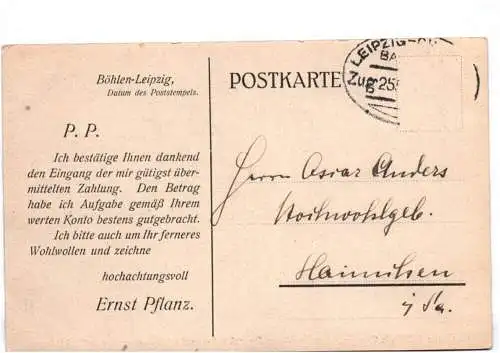 Böhlen-Leipzig,
Datum des Poststempels.
P. P.
Ich bestätige Ihnen dankend
den Eingang der mir gütigst über-
mittelten Zahlung. Den Betrag
habe ich Aufgabe gemäß Ihrem
werten Konto bestens gutgebracht.
Ich bitte auch um Ihr ferneres
Wohlwollen und zeichne
hochachtungsvoll
Ernst Pflanz.
POSTKARTE
LEIPZIG
Zug 25
Herrn Oscar Anders
Hochwohlgeb.
Hainichen
i/Sa.